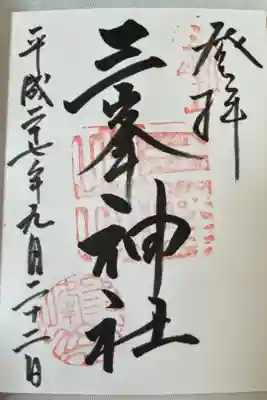 登拝
三峯神社
平成二十七年九月二十二日